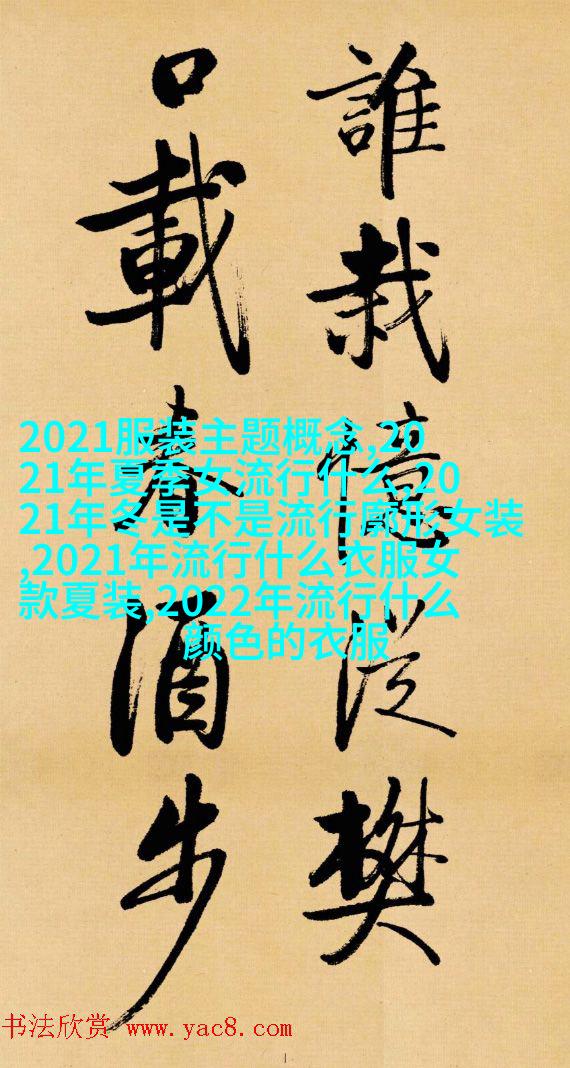 誰栽憶從樊
口載春酒步
2021服装主题概念,20
21年夏季女流行什么,20
21年冬是不是流行廓形女装
,2021年流行什么衣服女
款夏装,2022年流行什么
颜色的衣服
书法欣赏 www.yac8.com